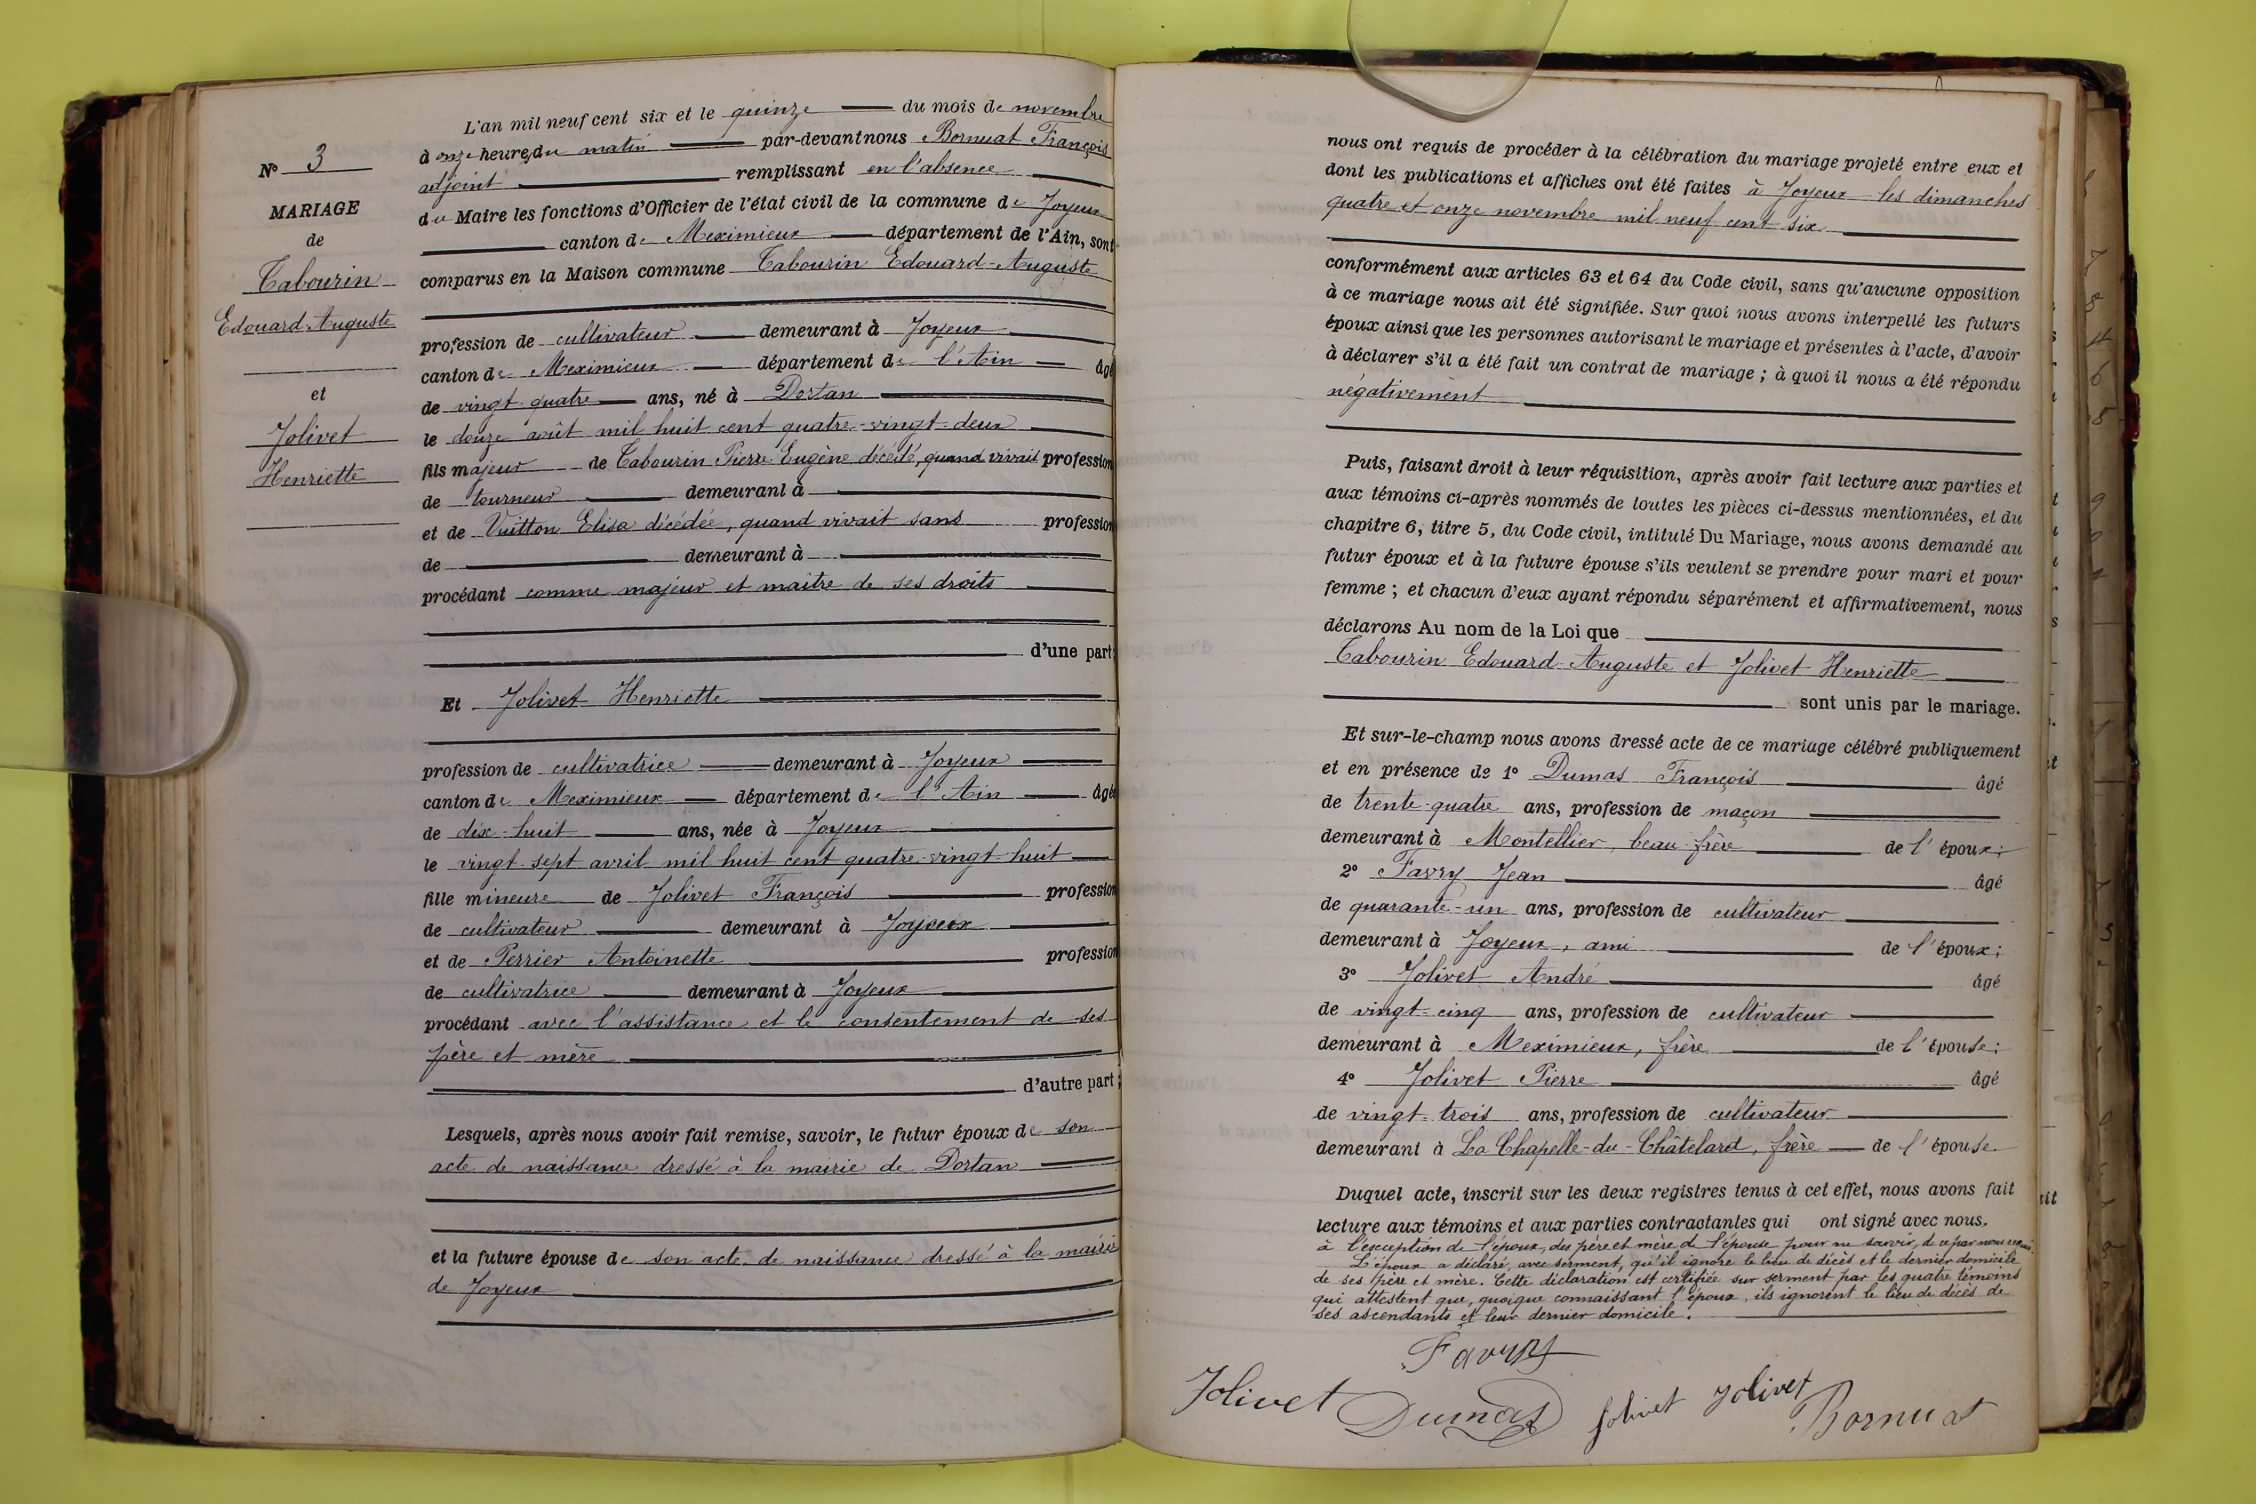 N° 3
MARIAGE
de
Tabourin
Edouard-Auguste
et
Jolivet
Henriette
L'an mil neuf cent six et le quinze du mois de novembre
à onze heures du matin par-devant nous Bornuat François
adjoint remplissant en l'absence
du Maire les fonctions d'Officier de l'état civil de la commune de Joyeux
canton de Meximieux département de l'Ain, sont
comparus en la Maison commune Tabourin Edouard-Auguste
profession de cultivateur demeurant à Joyeux
canton de Meximieux département de l'Ain âgé
de vingt-quatre ans, né à Dortan
le douze août mil huit cent quatre-vingt-deux
fils majeur de Tabourin Pierre Eugène décédé, quand vivait profession
de tourneur demeurant à
et de Vuitton Elisa décédée, quand vivait sans profession
de demeurant à
procédant comme majeur et maitre de ses droits
d'une part;
Et Jolivet Henriette
profession de cultivatrice demeurant à Joyeux
canton de Meximieux département de l'Ain âgée
de dix-huit ans, née à Joyeux
le vingt-sept avril mil huit cent quatre-vingt-huit
fille mineure de Jolivet François profession
de cultivateur demeurant à Joyeux
et de Perrier Antoinette profession
de cultivatrice demeurant à Joyeux
procédant avec l'assistance et le consentement de ses
père et mère
d'autre part;
Lesquels, après nous avoir fait remise, savoir, le futur époux de son
acte de naissance dressé à la mairie de Dortan
et la future épouse de son acte de naissance dressé à la mairie
de Joyeux
nous ont requis de procéder à la célébration du mariage projeté entre eux et
dont les publications et affiches ont été faites à Joyeux les dimanches
quatre et onze novembre mil neuf cent six
conformément aux articles 63 et 64 du Code civil, sans qu'aucune opposition
à ce mariage nous ait été signifiée. Sur quoi nous avons interpellé les futurs
époux ainsi que les personnes autorisant le mariage et présentes à l'acte, d'avoir
à déclarer s'il a été fait un contrat de mariage; à quoi il nous a été répondu
négativement
Puis, faisant droit à leur réquisition, après avoir fait lecture aux parties et
aux témoins ci-après nommés de toutes les pièces ci-dessus mentionnées, et du
chapitre 6, titre 5, du Code civil, intitulé Du Mariage, nous avons demandé au
futur époux et à la future épouse s'ils veulent se prendre pour mari et pour
femme; et chacun d'eux ayant répondu séparément et affirmativement, nous
déclarons Au nom de la Loi que
Tabourin Edouard-Auguste et Jolivet Henriette
sont unis par le mariage.
Et sur-le-champ nous avons dressé acte de ce mariage célébré publiquement
et en présence de 1° Dumas François âgé
de trente-quatre ans, profession de maçon
demeurant à Montellier, beau-frère de l'époux;
2° Favry Jean âgé
de quarante-un ans, profession de cultivateur
demeurant à Joyeux, ami de l'époux;
3° Jolivet André âgé
de vingt-cinq ans, profession de cultivateur
demeurant à Meximieux, frère de l'épouse;
4° Jolivet Pierre âgé
de vingt-trois ans, profession de cultivateur
demeurant à La Chapelle-du-Châtelard, frère de l'épouse.
Duquel acte, inscrit sur les deux registres tenus à cet effet, nous avons fait
lecture aux témoins et aux parties contractantes qui ont signé avec nous.
à l'exception de l'époux, des père et mère de l'épouse pour ne savoir, de ce par nous requis.
L'époux a déclaré, avec serment, qu'il ignore le lieu de décès et le dernier domicile
de ses père et mère. Cette déclaration est certifiée sur serment par les quatre témoins
qui attestent que, quoique connaissant l'époux, ils ignorent le lieu de décès de
ses ascendants et leur dernier domicile.
Favry
Jolivet Dumas Jolivet Jolivet Bornuat